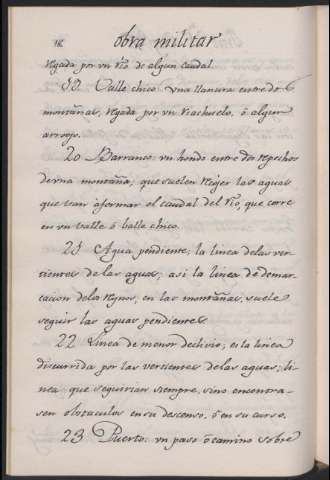 obra militar
regada por vn río de algun caudal.
Valle chico: vna llanura entre dos
montañas, regada por vn riachuelo, ó algun
arroyo.
20 Barranco: vn hondo entre dos repechos
de vna montaña; que suelen recojer las aguas
que van á formar el caudal del río, que corre
en vn valle ó balle chico.
21 Agua pendiente; la linea de las ver-
tientes de las aguas; asi la linea de demar-
cacion de los reynos, en las montañas, suele
seguir las aguas pendientes.
22 Linea de menor declivio; es la linea
discurrida por las vertientes de las aguas; li-
nea que seguirian siempre, sino encontra-
sen obstaculos en su descenso, ó en su curso.
23 Puerto: vn paso ó camino sobre